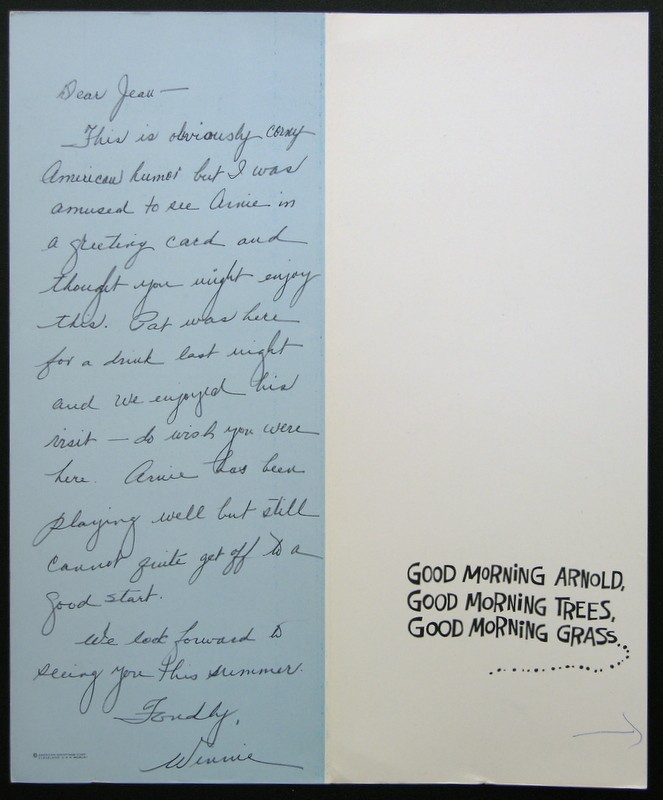 Dear Jean —
This is obviously corny
American humor but I was
amused to see Arnie in
a greeting card and
thought you might enjoy
this. Pat was here
for a drink last night
and we enjoyed his
visit — do wish you were
here. Arnie has been
playing well but still
cannot quite get off to a
good start.
We look forward to
seeing you this summer.
Fondly,
Winnie
GOOD MORNING ARNOLD,
GOOD MORNING TREES,
GOOD MORNING GRASS.